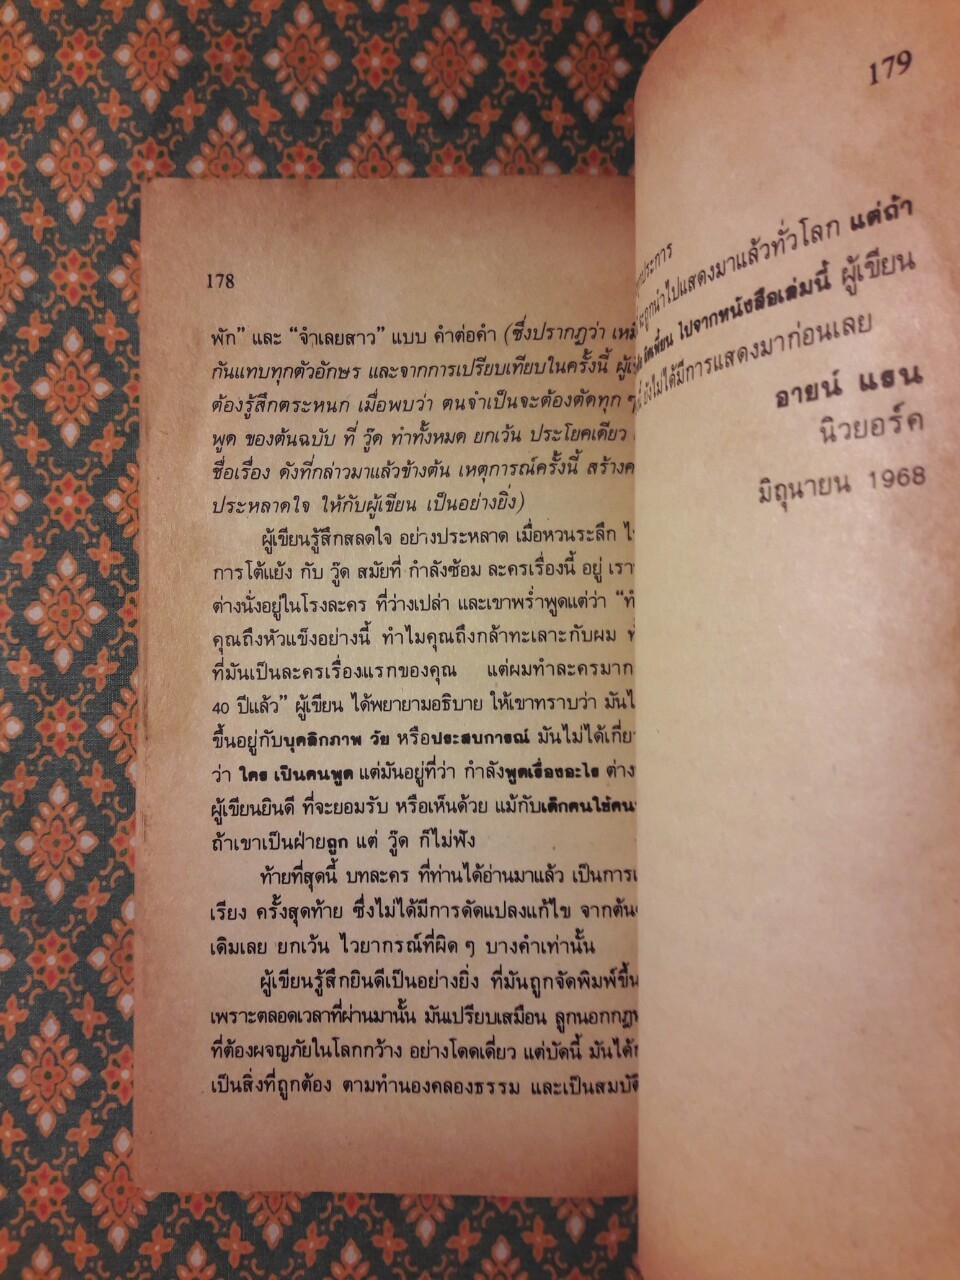 178
พัก” และ “จำเลยสาว” แบบ คำต่อคำ (ซึ่งปรากฎว่า
กันแทบทุกตัวอักษร และจากการเปรียบเทียบในครั้งนี้
ต้องรู้สึกตระหนก เมื่อพบว่า ตนจำเป็นจะต้องตัดทุก ๆ
พูด ของต้นฉบับ ที่ วู๊ด ทำทั้งหมด ยกเว้น ประโยคเดียว
ชื่อเรื่อง ดังที่กล่าวมาแล้วข้างต้น เหตุการณ์ครั้งนี้ สร้าง
ประหลาดใจ ให้กับผู้เขียน เป็นอย่างยิ่ง)
ผู้เขียนรู้สึกสลดใจ อย่างประหลาด เมื่อหวนระลึก
การโต้แย้ง กับ วู๊ด สมัยที่ กำลังซ้อม ละครเรื่องนี้ อยู่ เรา
ต่างนั่งอยู่ในโรงละคร ที่ว่างเปล่า และเขาพร่ำพูดแต่ว่า
คุณถึงหัวแข็งอย่างนี้ ทำไมคุณถึงกล้าทะเลาะกับผม
ที่มันเป็นละครเรื่องแรกของคุณ แต่ผมทำละครมาก
40 ปีแล้ว” ผู้เขียน ได้พยายามอธิบาย ให้เขาทราบว่า
ขึ้นอยู่กับบุคลิกภาพ วัย หรือประสบการณ์ มันไม่ได้
ว่า ใคร เป็นคนพูด แต่มันอยู่ที่ว่า กำลังพูดเรื่องอะไร ต่าง
ผู้เขียนยินดี ที่จะยอมรับ หรือเห็นด้วย แม้กับเด็กคนใช้
ถ้าเขาเป็นฝ่ายถูก แต่ วู๊ด ก็ไม่ฟัง
ท้ายที่สุดนี้ บทละคร ที่ท่านได้อ่านมาแล้ว เป็นการ
เรียง ครั้งสุดท้าย ซึ่งไม่ได้มีการดัดแปลงแก้ไข จาก
เดิมเลย ยกเว้น ไวยากรณ์ที่ผิด ๆ บางคำเท่านั้น
ผู้เขียนรู้สึกยินดีเป็นอย่างยิ่ง ที่มันถูกจัดพิมพ์ขึ้น
เพราะตลอดเวลาที่ผ่านมานั้น มันเปรียบเสมือน
ที่ต้องผจญภัยในโลกกว้าง อย่างโดดเดี่ยว แต่บัดนี้
เป็นสิ่งที่ถูกต้อง ตามทำนองคลองธรรม และเป็น
179
ประการ
ถูกนำไปแสดงมาแล้วทั่วโลก แต่ถ้า
ไปจากหนังสือเล่มนี้ ผู้เขียน
ยังไม่ได้มีการแสดงมาก่อนเลย
อายน์ แรน
นิวยอร์ค
มิถุนายน 1968